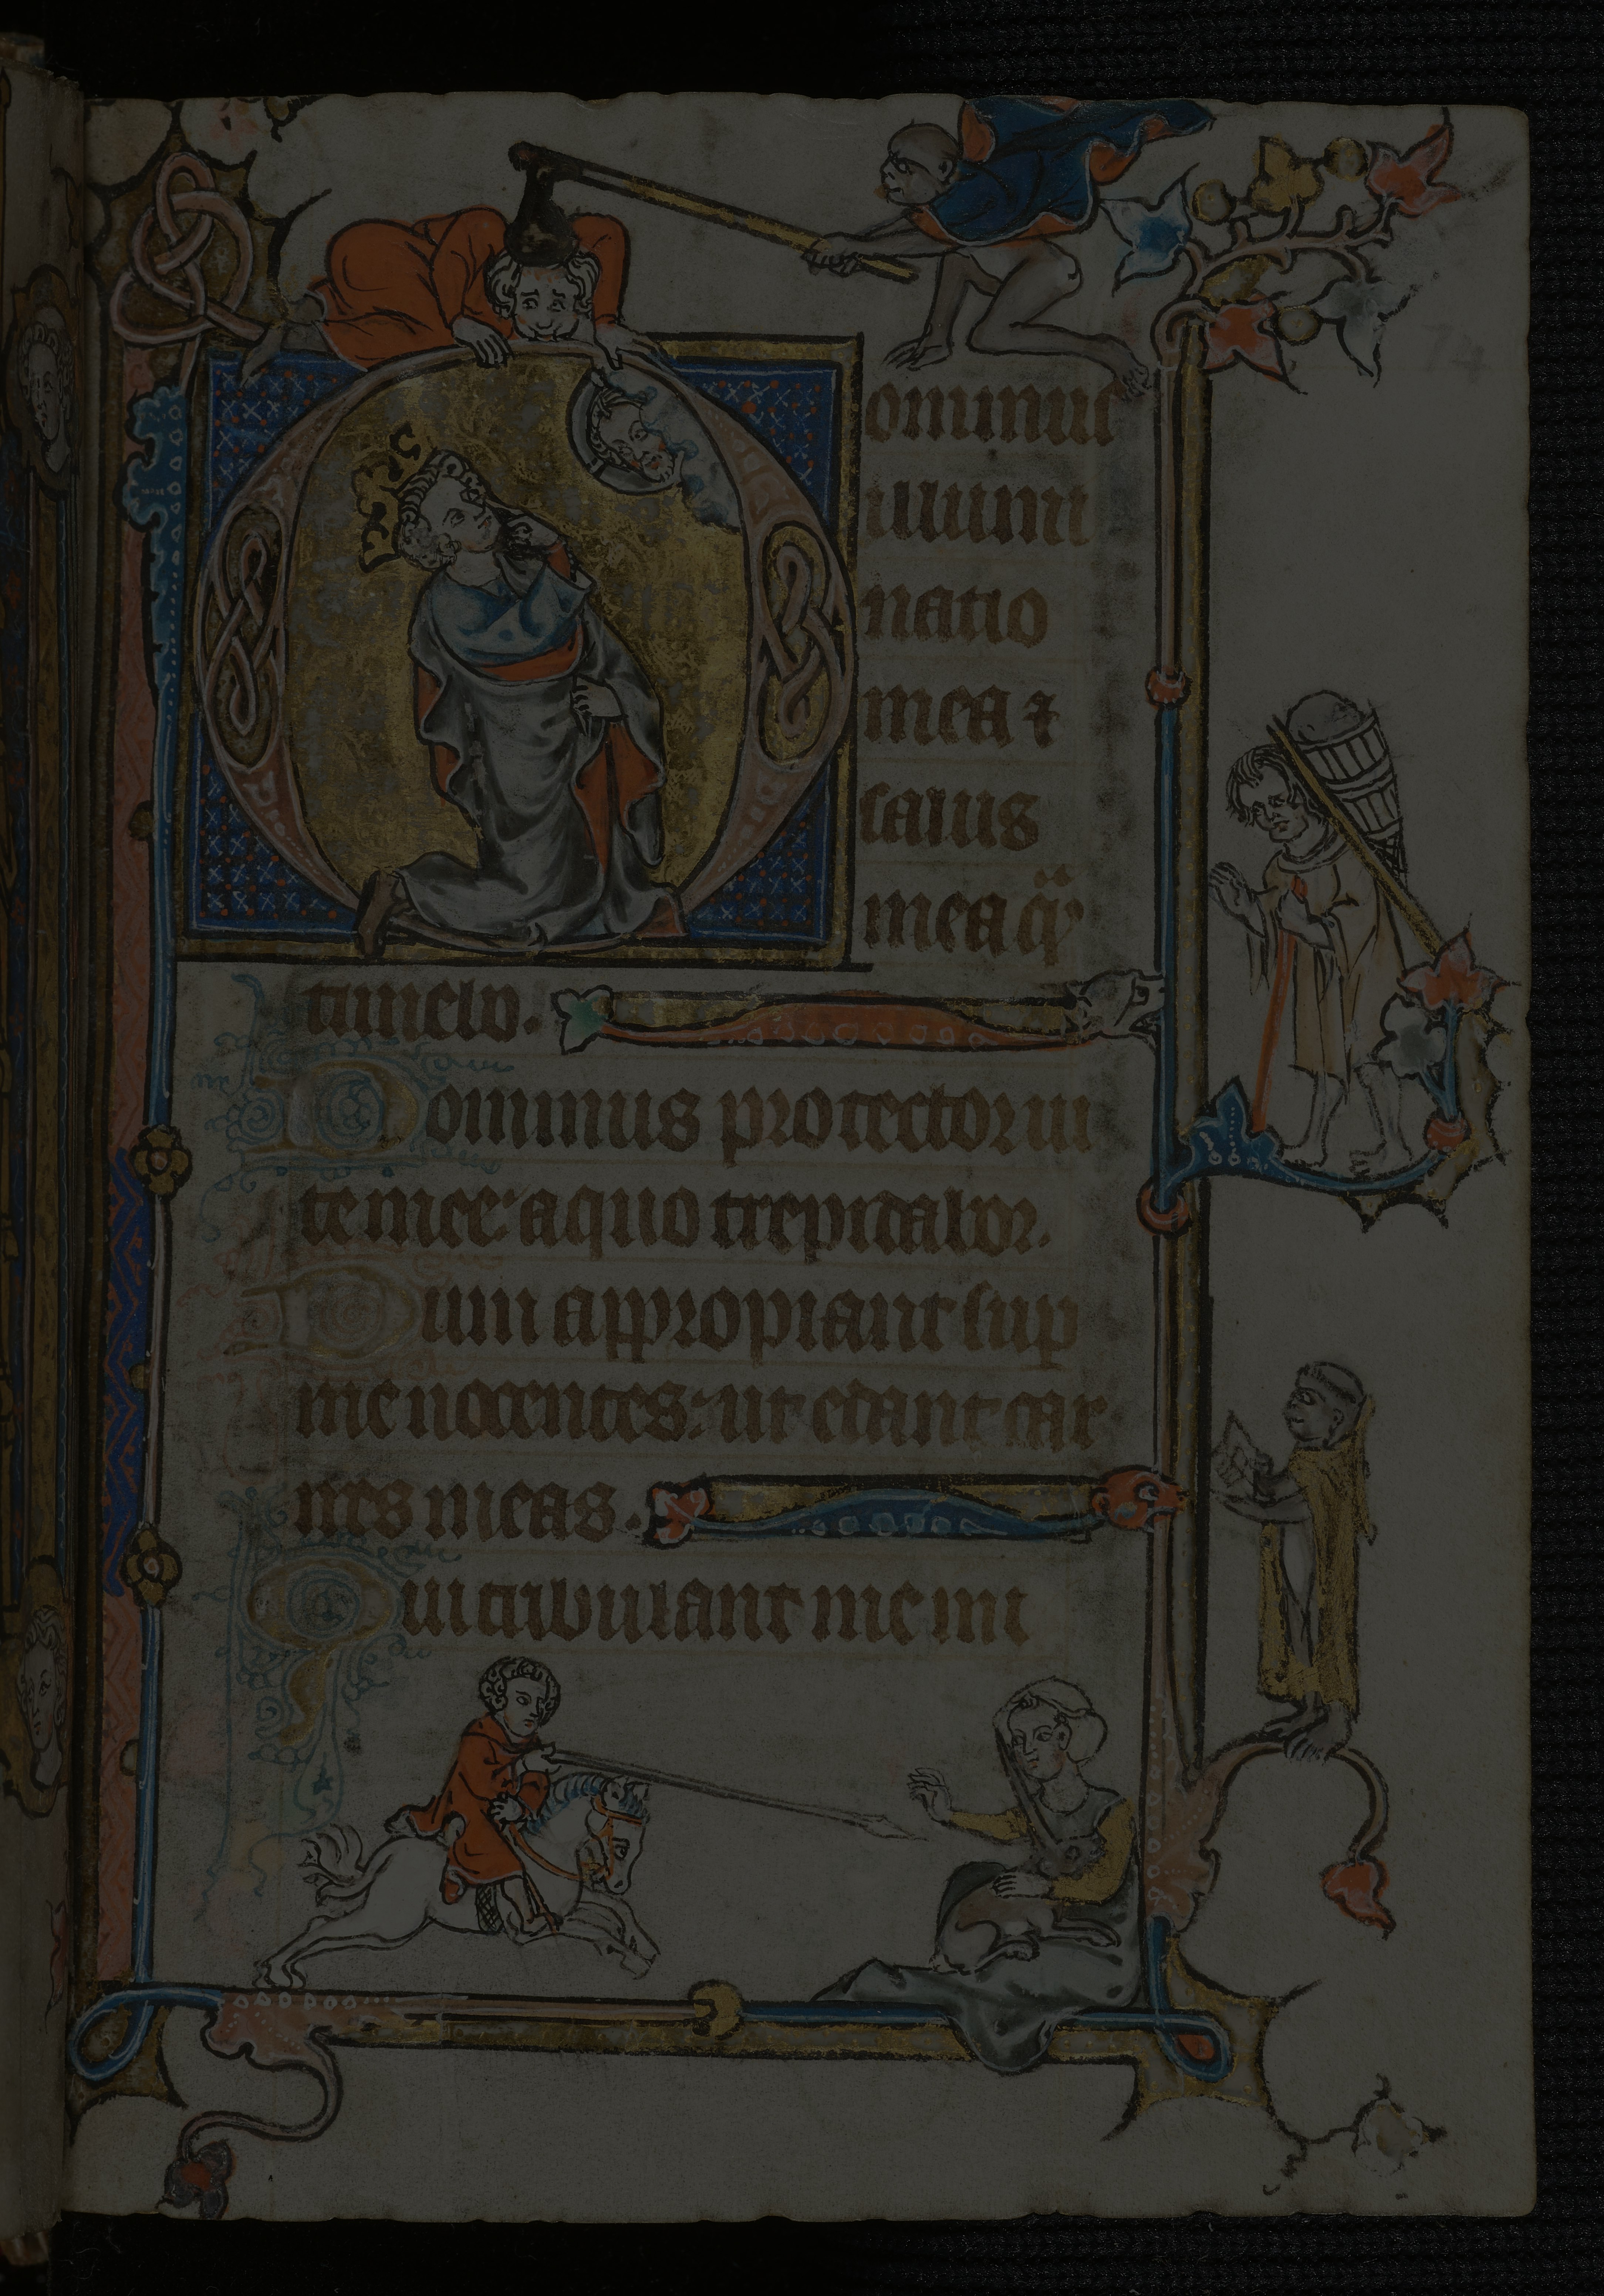 ominus
illumi
natio
mea ⁊
salus
mea q̃
timebo.
Dominus protector ui
te mee: a quo trepidabor.
Dum appropiant sup̱
me nocentes: ut edant car
nes meas.
Qui tribulant me mi
74